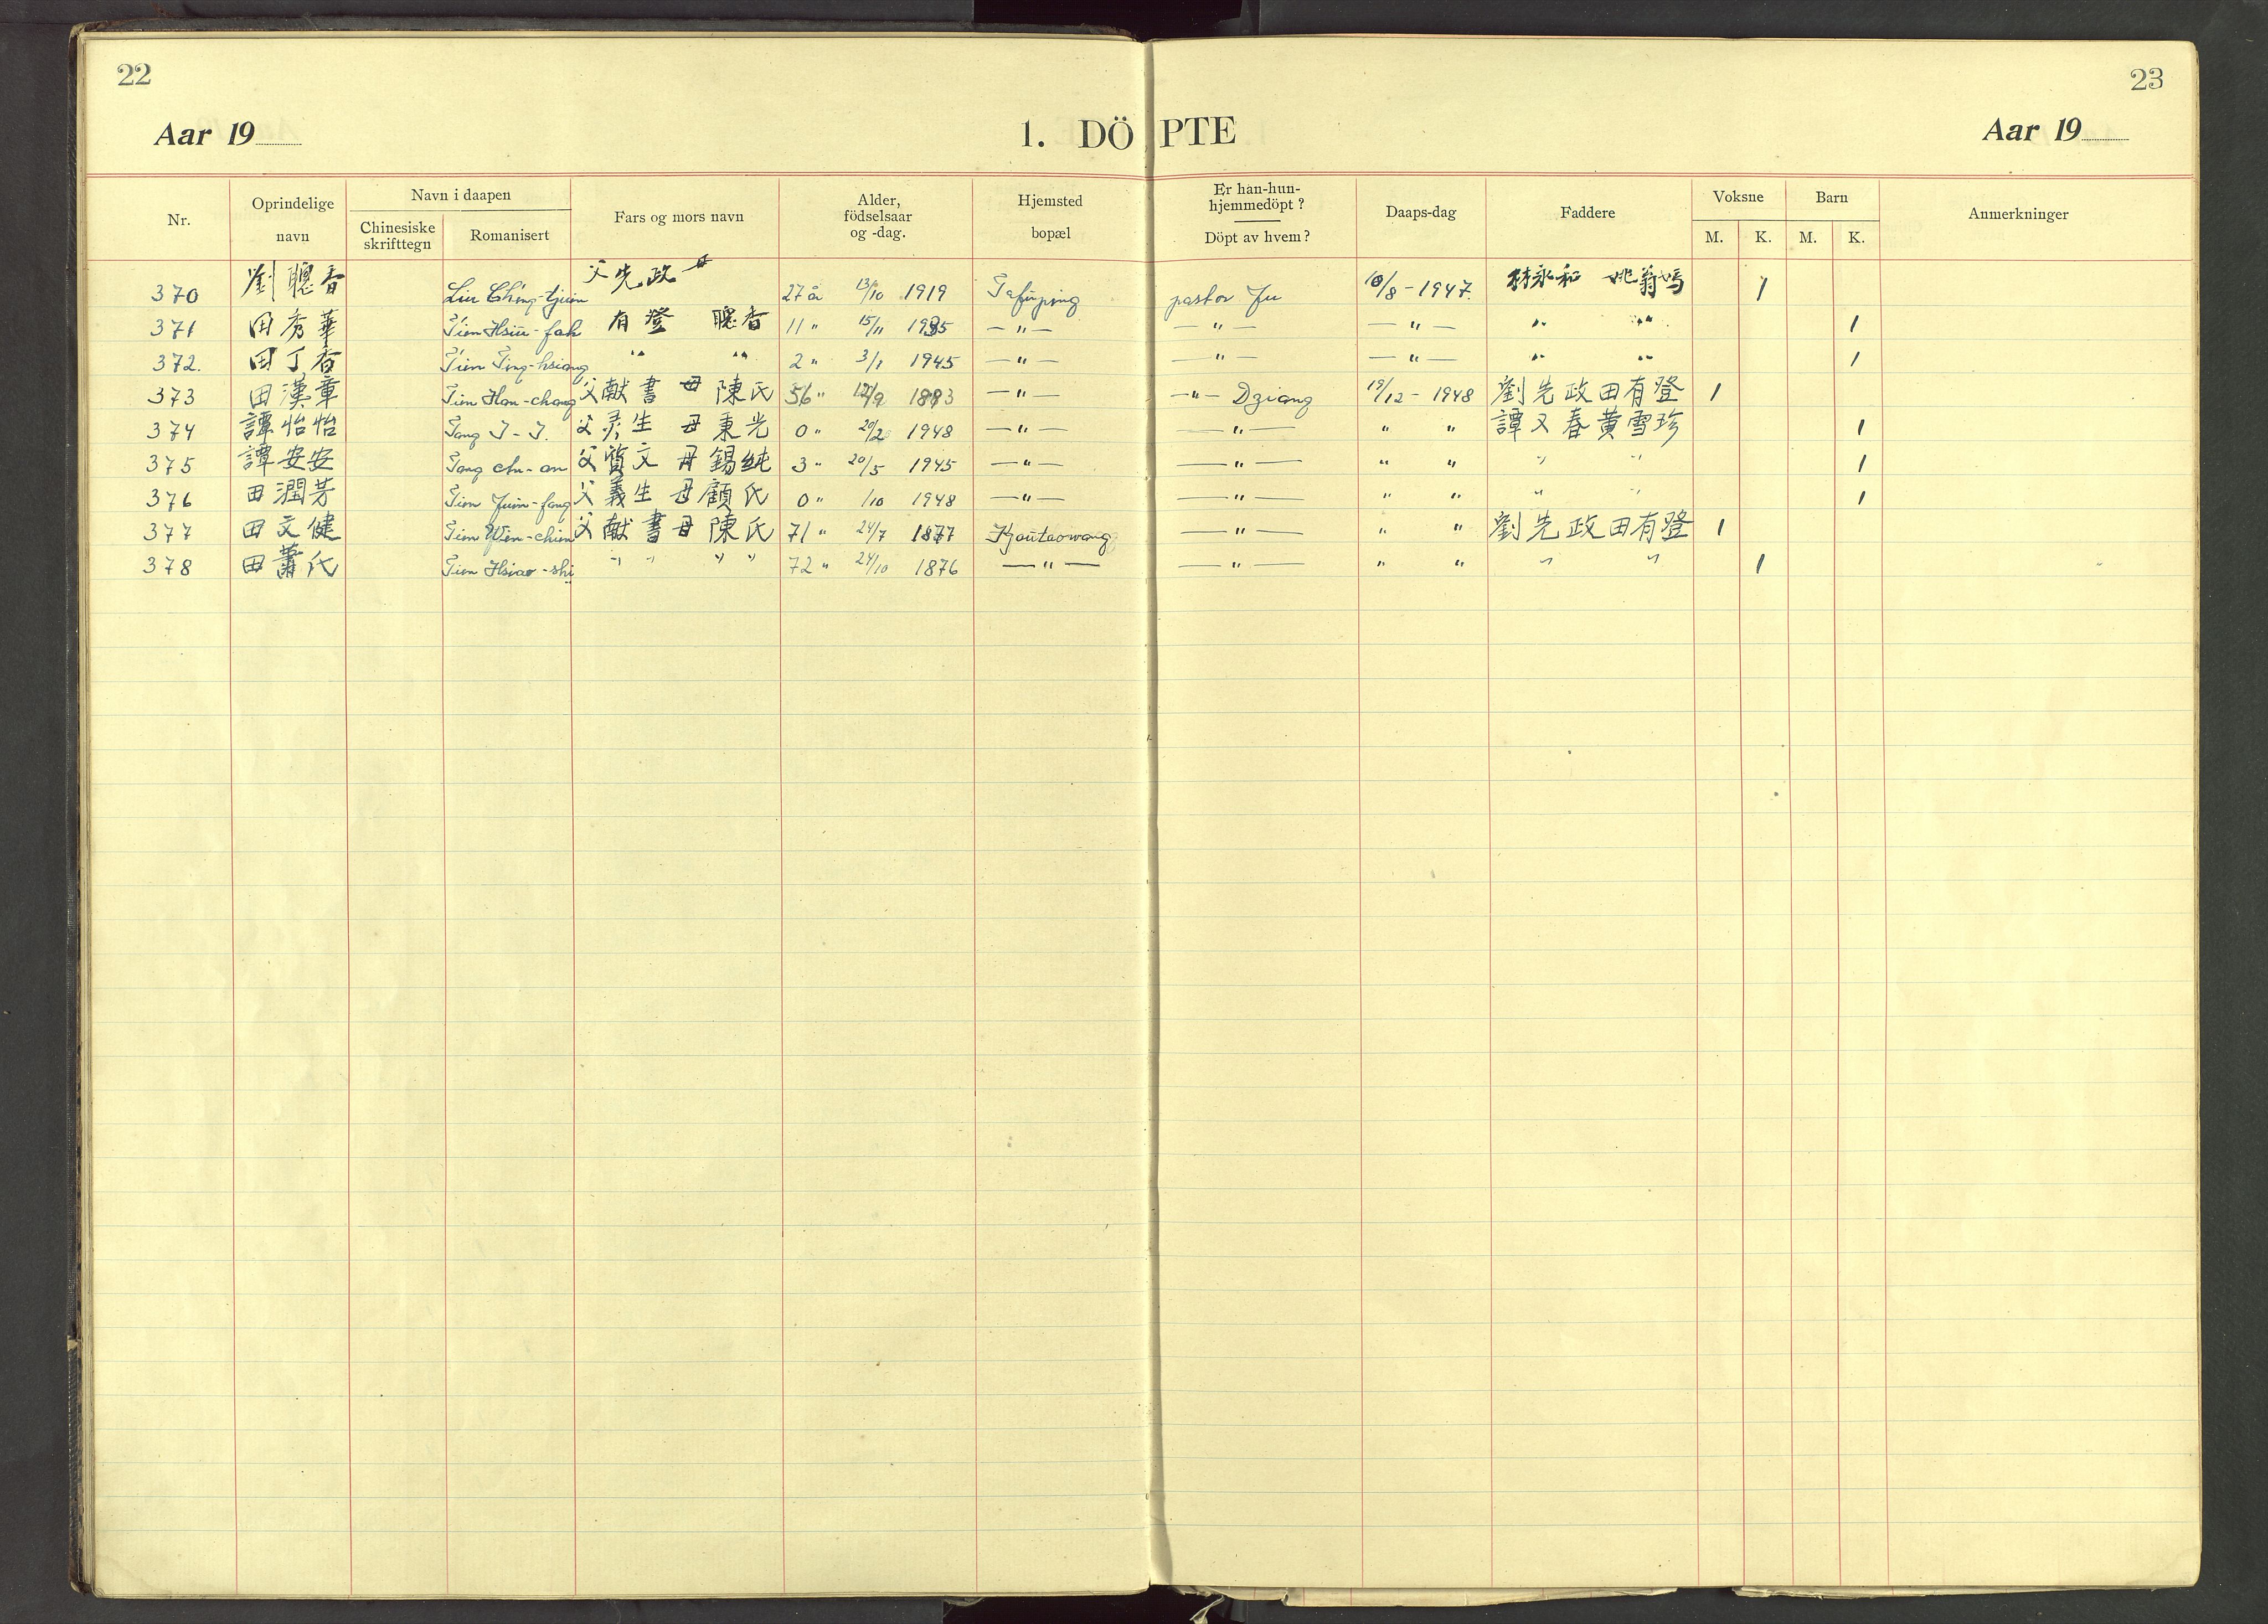 22
23
Aar 19
1. DÖPTE
Aar 19
Nr.
Oprindelige navn
Navn i daapen
Chinesiske skrifttegn
Romanisert
Fars og mors navn
Alder, födselsaar og -dag.
Hjemsted bopæl
Er han-hun-hjemmedöpt?
Döpt av hvem?
Daaps-dag
Faddere
Voksne
M. K.
Barn
M. K.
Anmerkninger
370 劉聰香 Liu 父先政 母 27 år 13/10 1919 Tafuping pastor Fu 10/8 - 1947. 林永和 姚翁嗎 1
371 田秀華 Tien Hsiu-fah 有登 聰香 11 " 15/11 1935 — " — — " — — " — " " 1
372. 田丁香 Tien Ting-hsiang " " 2 " 3/1 1945 — " — — " — — " — " " 1
373 田漢章 Tien Han-chang 父献書 母陳氏 56 " 12/9 1893 — " — - " - Dziang 19/12 - 1948 劉先政田有登 1
374 譚怡怡 Tang I-I. 父灵生 母東光 0 " 20/2 1948 — " — — " — " " 譚又春黄雪珍 1
375 譚安安 Tang an-an 父質文 母錫純 3 " 20/5 1945 — " — — " — " " " " 1
376 田潤芳 Tien Juin-fang 父義生 母顧氏 0 " /10 1948 — " — — " — " " " " 1
377 田文健 Tien Wen-chien 父献書母陳氏 71 " 24/7 1877 Kjautaowang — " — " " 劉先政田有登 1
378 田蕭氏 Tien Hsiao-shi " " " " 72 " 24/10 1876 — " — — " — " " " " 1